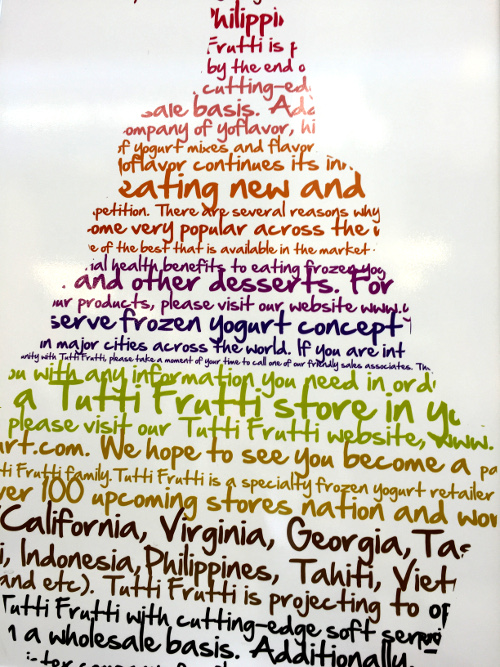 Philippi
Frutti is p
by the end o
cutting-ed
sale basis. Ad
ompany of yoflavor, hi
of yogurt mixes and flavor
Yoflavor continues its inn
eating new and
petition. There are several reasons why
ome very popular across the
e of the best that is available in the market
ial health benefits to eating frozen yog
and other desserts. For
ur products, please visit our website www.
serve frozen yogurt concept
in major cities across the world. If you are int
unity with Tutti Frutti, please take a moment of your time to call one of our friendly sales associates. Th
ou with any information you need in ord
a Tutti Frutti store in yo
please visit our Tutti Frutti website, www.
urt.com. We hope to see you become a pa
ti Frutti family. Tutti Frutti is a specialty frozen yogurt retailer
ver 100 upcoming stores nation and wor
California, Virginia, Georgia, Tas
i, Indonesia, Philippines, Tahiti, Viet
and etc). Tutti Frutti is projecting to op
Tutti Frutti with cutting-edge soft servi
n a wholesale basis. Additionally